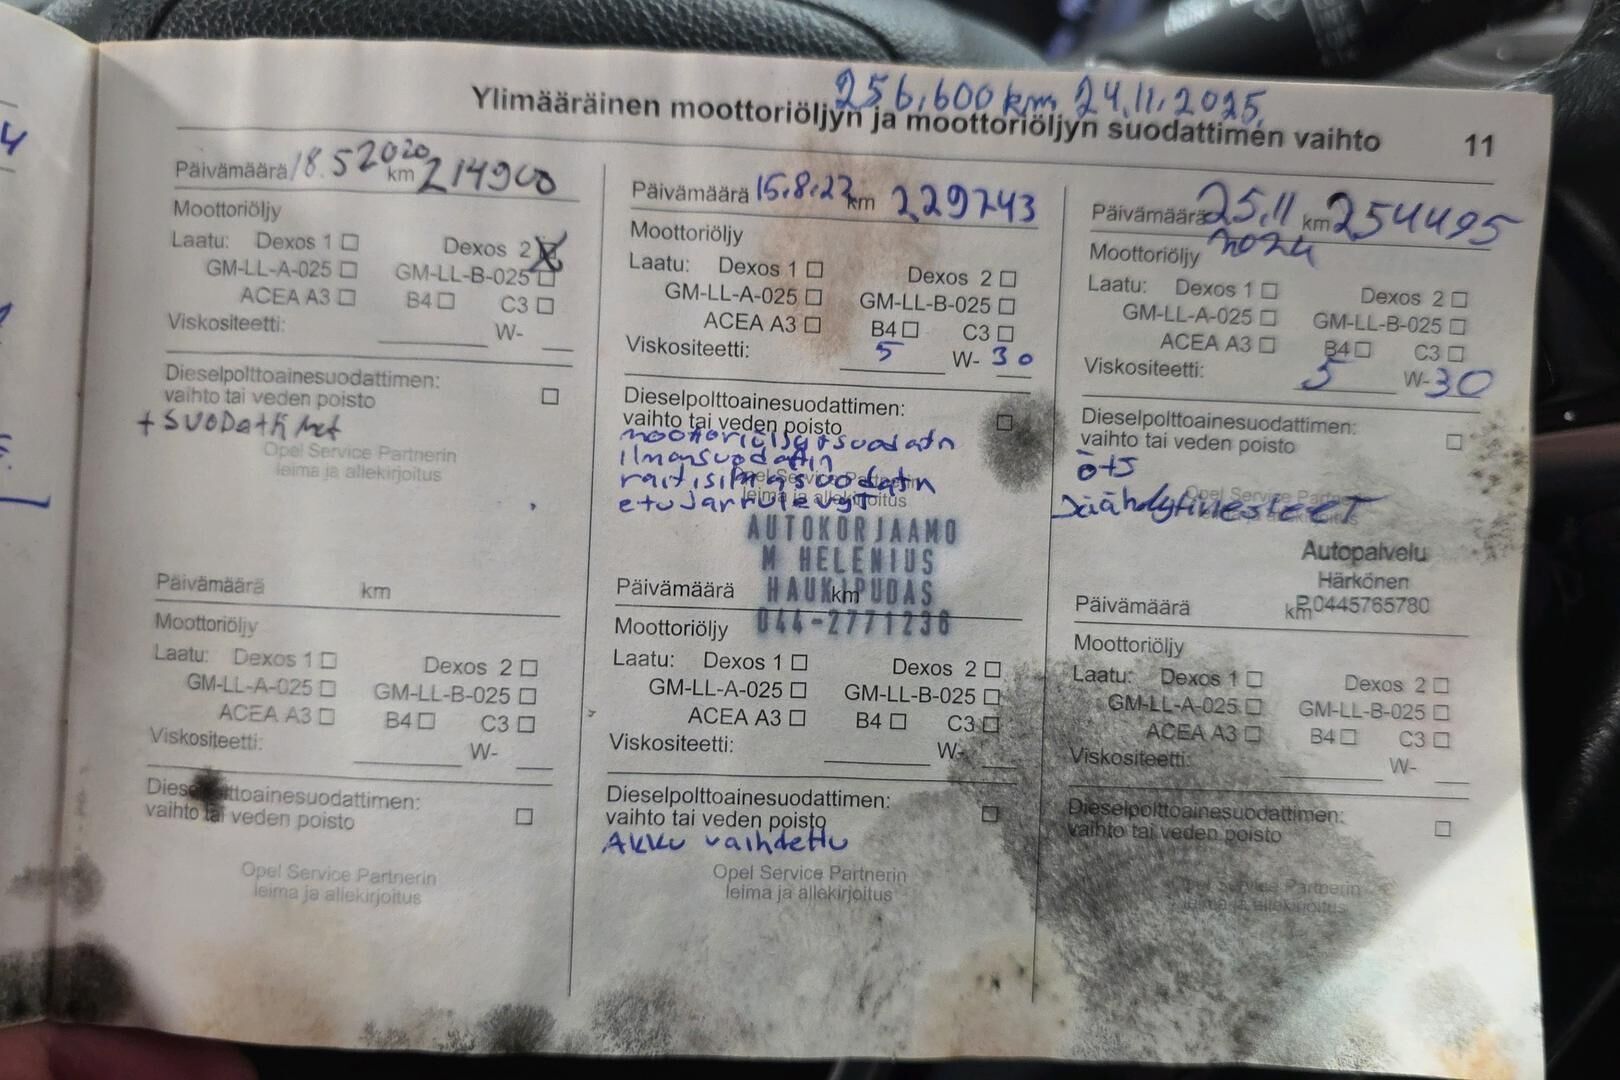 256.600 km 24.11.2025
Ylimääräinen moottoriöljyn ja moottoriöljyn suodattimen vaihto 11
Päivämäärä 18.5 2020 km 214900
Moottoriöljy
Laatu: Dexos 1 ☐ Dexos 2 ☒
GM-LL-A-025 ☐ GM-LL-B-025 ☐
ACEA A3 ☐ B4 ☐ C3 ☐
Viskositeetti: W-
Dieselpolttoainesuodattimen: ☐
vaihto tai veden poisto
+ suodattimet
Opel Service Partnerin
leima ja allekirjoitus
Päivämäärä km
Moottoriöljy
Laatu: Dexos 1 ☐ Dexos 2 ☐
GM-LL-A-025 ☐ GM-LL-B-025 ☐
ACEA A3 ☐ B4 ☐ C3 ☐
Viskositeetti: W-
Dieselpolttoainesuodattimen: ☐
vaihto tai veden poisto
Opel Service Partnerin
leima ja allekirjoitus
Päivämäärä 15.8.22 km 229743
Moottoriöljy
Laatu: Dexos 1 ☐ Dexos 2 ☐
GM-LL-A-025 ☐ GM-LL-B-025 ☐
ACEA A3 ☐ B4 ☐ C3 ☐
Viskositeetti: 5 W- 30
Dieselpolttoainesuodattimen: ☐
vaihto tai veden poisto
moottoriöljy+suodatin
ilmansuodatin
raitisilmasuodatin
etujarrulevyt
Opel Service Partnerin
leima ja allekirjoitus
AUTOKORJAAMO
M HELENIUS
HAUKIPUDAS
044-2771236
Päivämäärä km
Moottoriöljy
Laatu: Dexos 1 ☐ Dexos 2 ☐
GM-LL-A-025 ☐ GM-LL-B-025 ☐
ACEA A3 ☐ B4 ☐ C3 ☐
Viskositeetti: W-
Dieselpolttoainesuodattimen: ☐
vaihto tai veden poisto
Akku vaihdettu
Opel Service Partnerin
leima ja allekirjoitus
Päivämäärä 25.11 km 254495
2024
Moottoriöljy
Laatu: Dexos 1 ☐ Dexos 2 ☐
GM-LL-A-025 ☐ GM-LL-B-025 ☐
ACEA A3 ☐ B4 ☐ C3 ☐
Viskositeetti: 5 W-30
Dieselpolttoainesuodattimen: ☐
vaihto tai veden poisto
ö+s
Jäähdytinnesteet
Opel Service Partnerin
Autopalvelu
Härkönen
P.0445765780
Päivämäärä km
Moottoriöljy
Laatu: Dexos 1 ☐ Dexos 2 ☐
GM-LL-A-025 ☐ GM-LL-B-025 ☐
ACEA A3 ☐ B4 ☐ C3 ☐
Viskositeetti: W-
Dieselpolttoainesuodattimen: ☐
vaihto tai veden poisto
Opel Service Partnerin
leima ja allekirjoitus